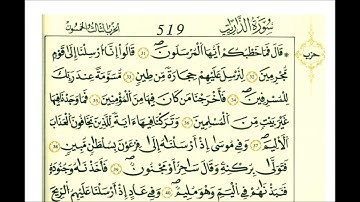 الحزب الثالث والخمسون 519 سورة الذاريات
حزب
قَالَ فَمَا خَطْبُكُمْ أَيُّهَا الْمُرْسَلُونَ 31 قَالُوا إِنَّا أُرْسِلْنَا إِلَى قَوْمٍ
مُجْرِمِينَ 32 لِنُرْسِلَ عَلَيْهِمْ حِجَارَةً مِنْ طِينٍ 33 مُسَوَّمَةً عِنْدَ رَبِّكَ
لِلْمُسْرِفِينَ 34 فَأَخْرَجْنَا مَنْ كَانَ فِيهَا مِنَ الْمُؤْمِنِينَ 35 فَمَا وَجَدْنَا فِيهَا
غَيْرَ بَيْتٍ مِنَ الْمُسْلِمِينَ 36 وَتَرَكْنَا فِيهَا ءَايَةً لِلَّذِينَ يَخَافُونَ الْعَذَابَ
الْأَلِيمَ 37 وَفِي مُوسَى إِذْ أَرْسَلْنَاهُ إِلَى فِرْعَوْنَ بِسُلْطَانٍ مُبِينٍ 38
فَتَوَلَّى بِرُكْنِهِ وَقَالَ سَاحِرٌ أَوْ مَجْنُونٌ 39 فَأَخَذْنَاهُ وَجُنُودَهُ
فَنَبَذْنَاهُمْ فِي الْيَمِّ وَهُوَ مُلِيمٌ 40 وَفِي عَادٍ إِذْ أَرْسَلْنَا عَلَيْهِمُ الرِّيحَ